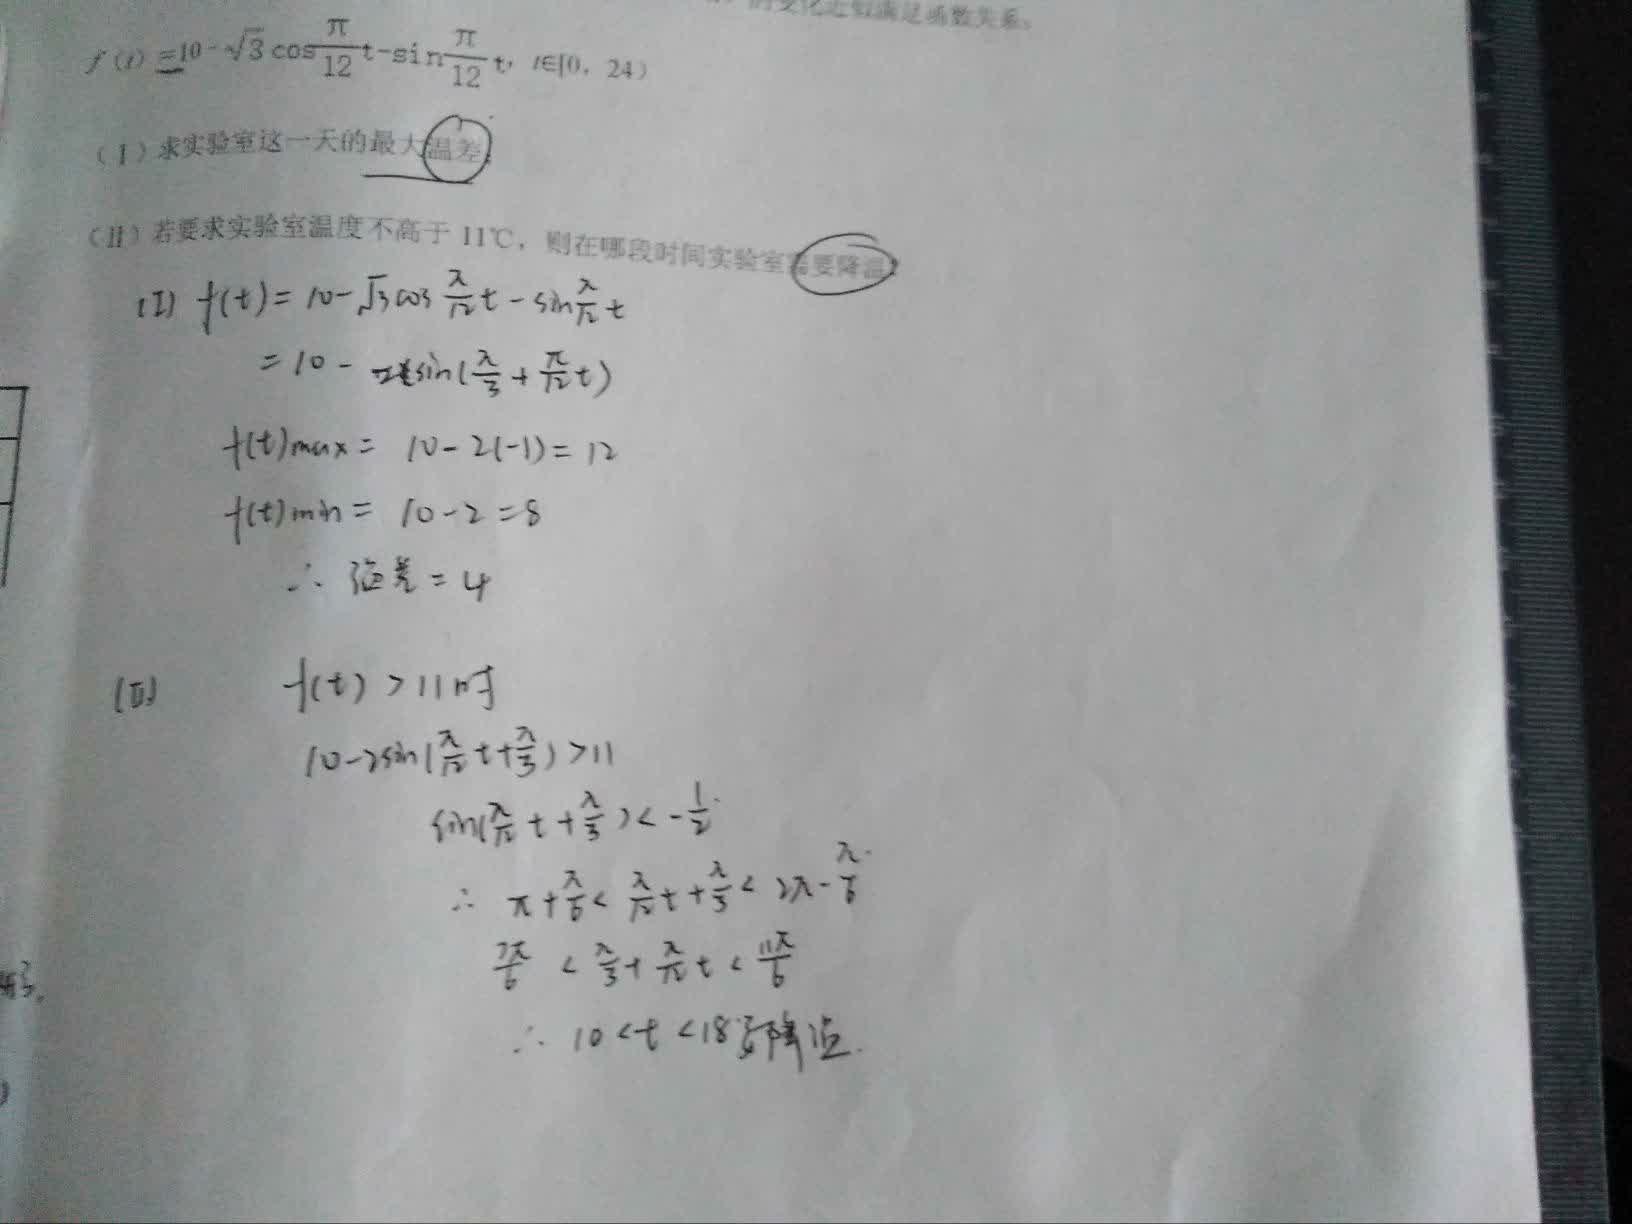 的变化近似满足函数关系。
f(t)=10-√3cosπ/12t-sinπ/12t, t∈[0, 24)
(I)求实验室这一天的最大温差;
(II)若要求实验室温度不高于11℃,则在哪段时间实验室需要降温?
(I) f(t)=10-√3cosπ/12t-sinπ/12t
=10-2sin(π/3+π/12t)
f(t)max=10-2(-1)=12
f(t)min=10-2=8
∴温差=4
(II) f(t)>11时
10-2sin(π/12t+π/3)>11
sin(π/12t+π/3)<-1/2
∴π+π/6<π/12t+π/3<2π-π/6
7π/6<π/3+π/12t<11π/6
∴10<t<18要降温.